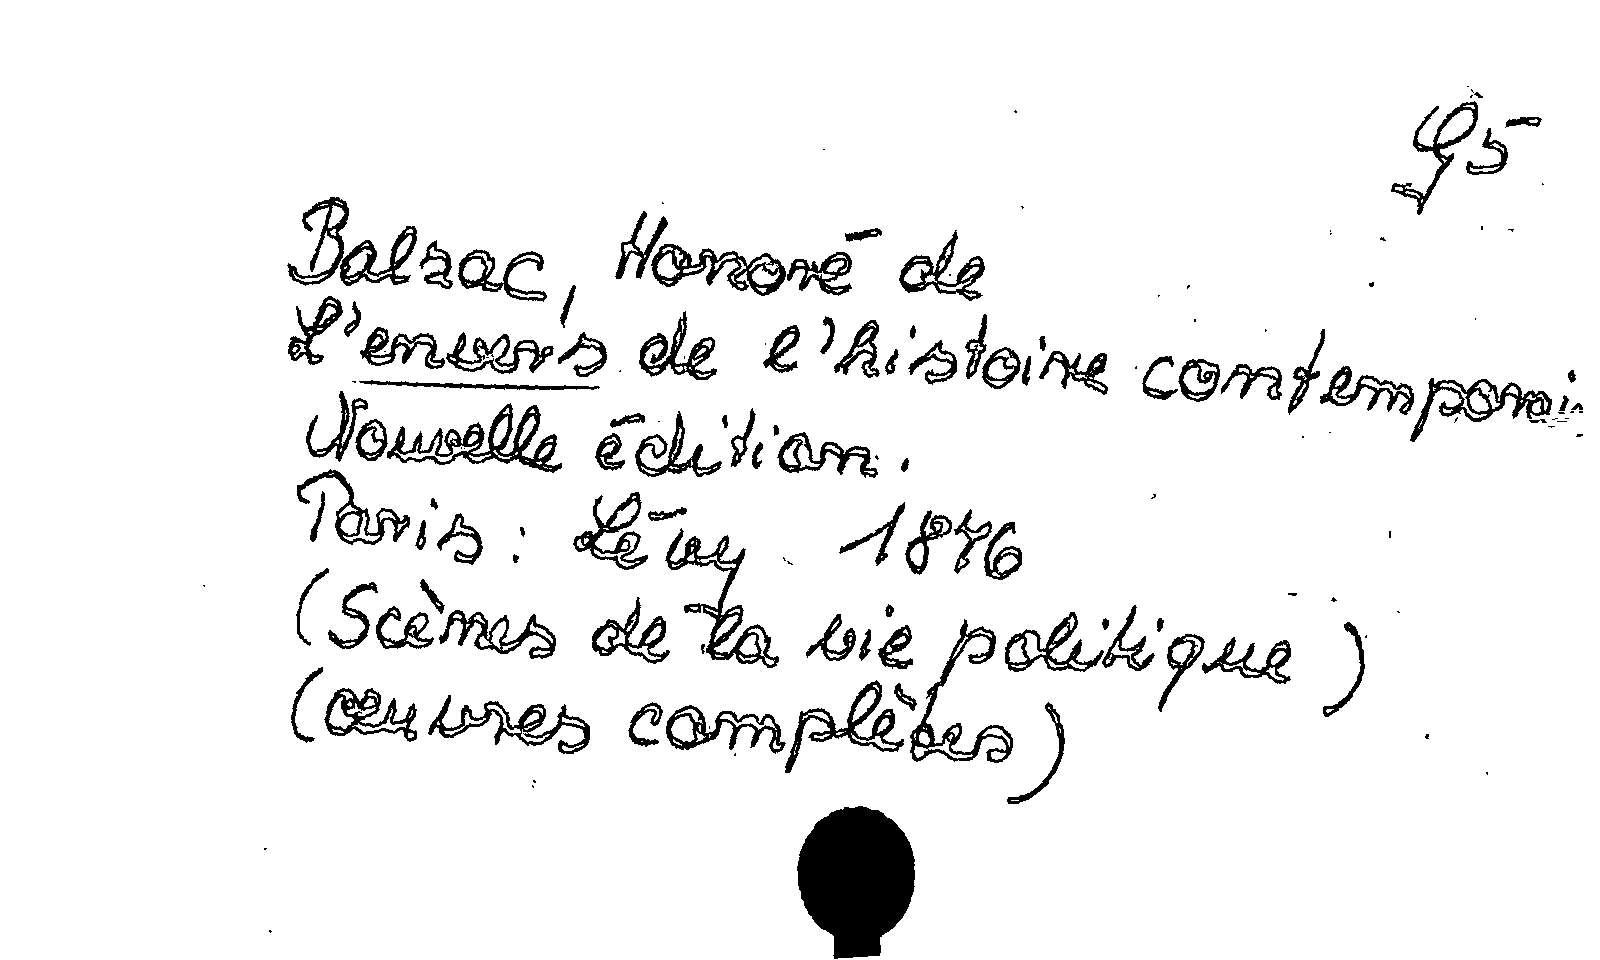 95
Balzac, Honoré de
L'envers de l'histoire contemporai
Nouvelle édition.
Paris: Lévy 1876
(Scènes de la vie politique)
(œuvres complètes)